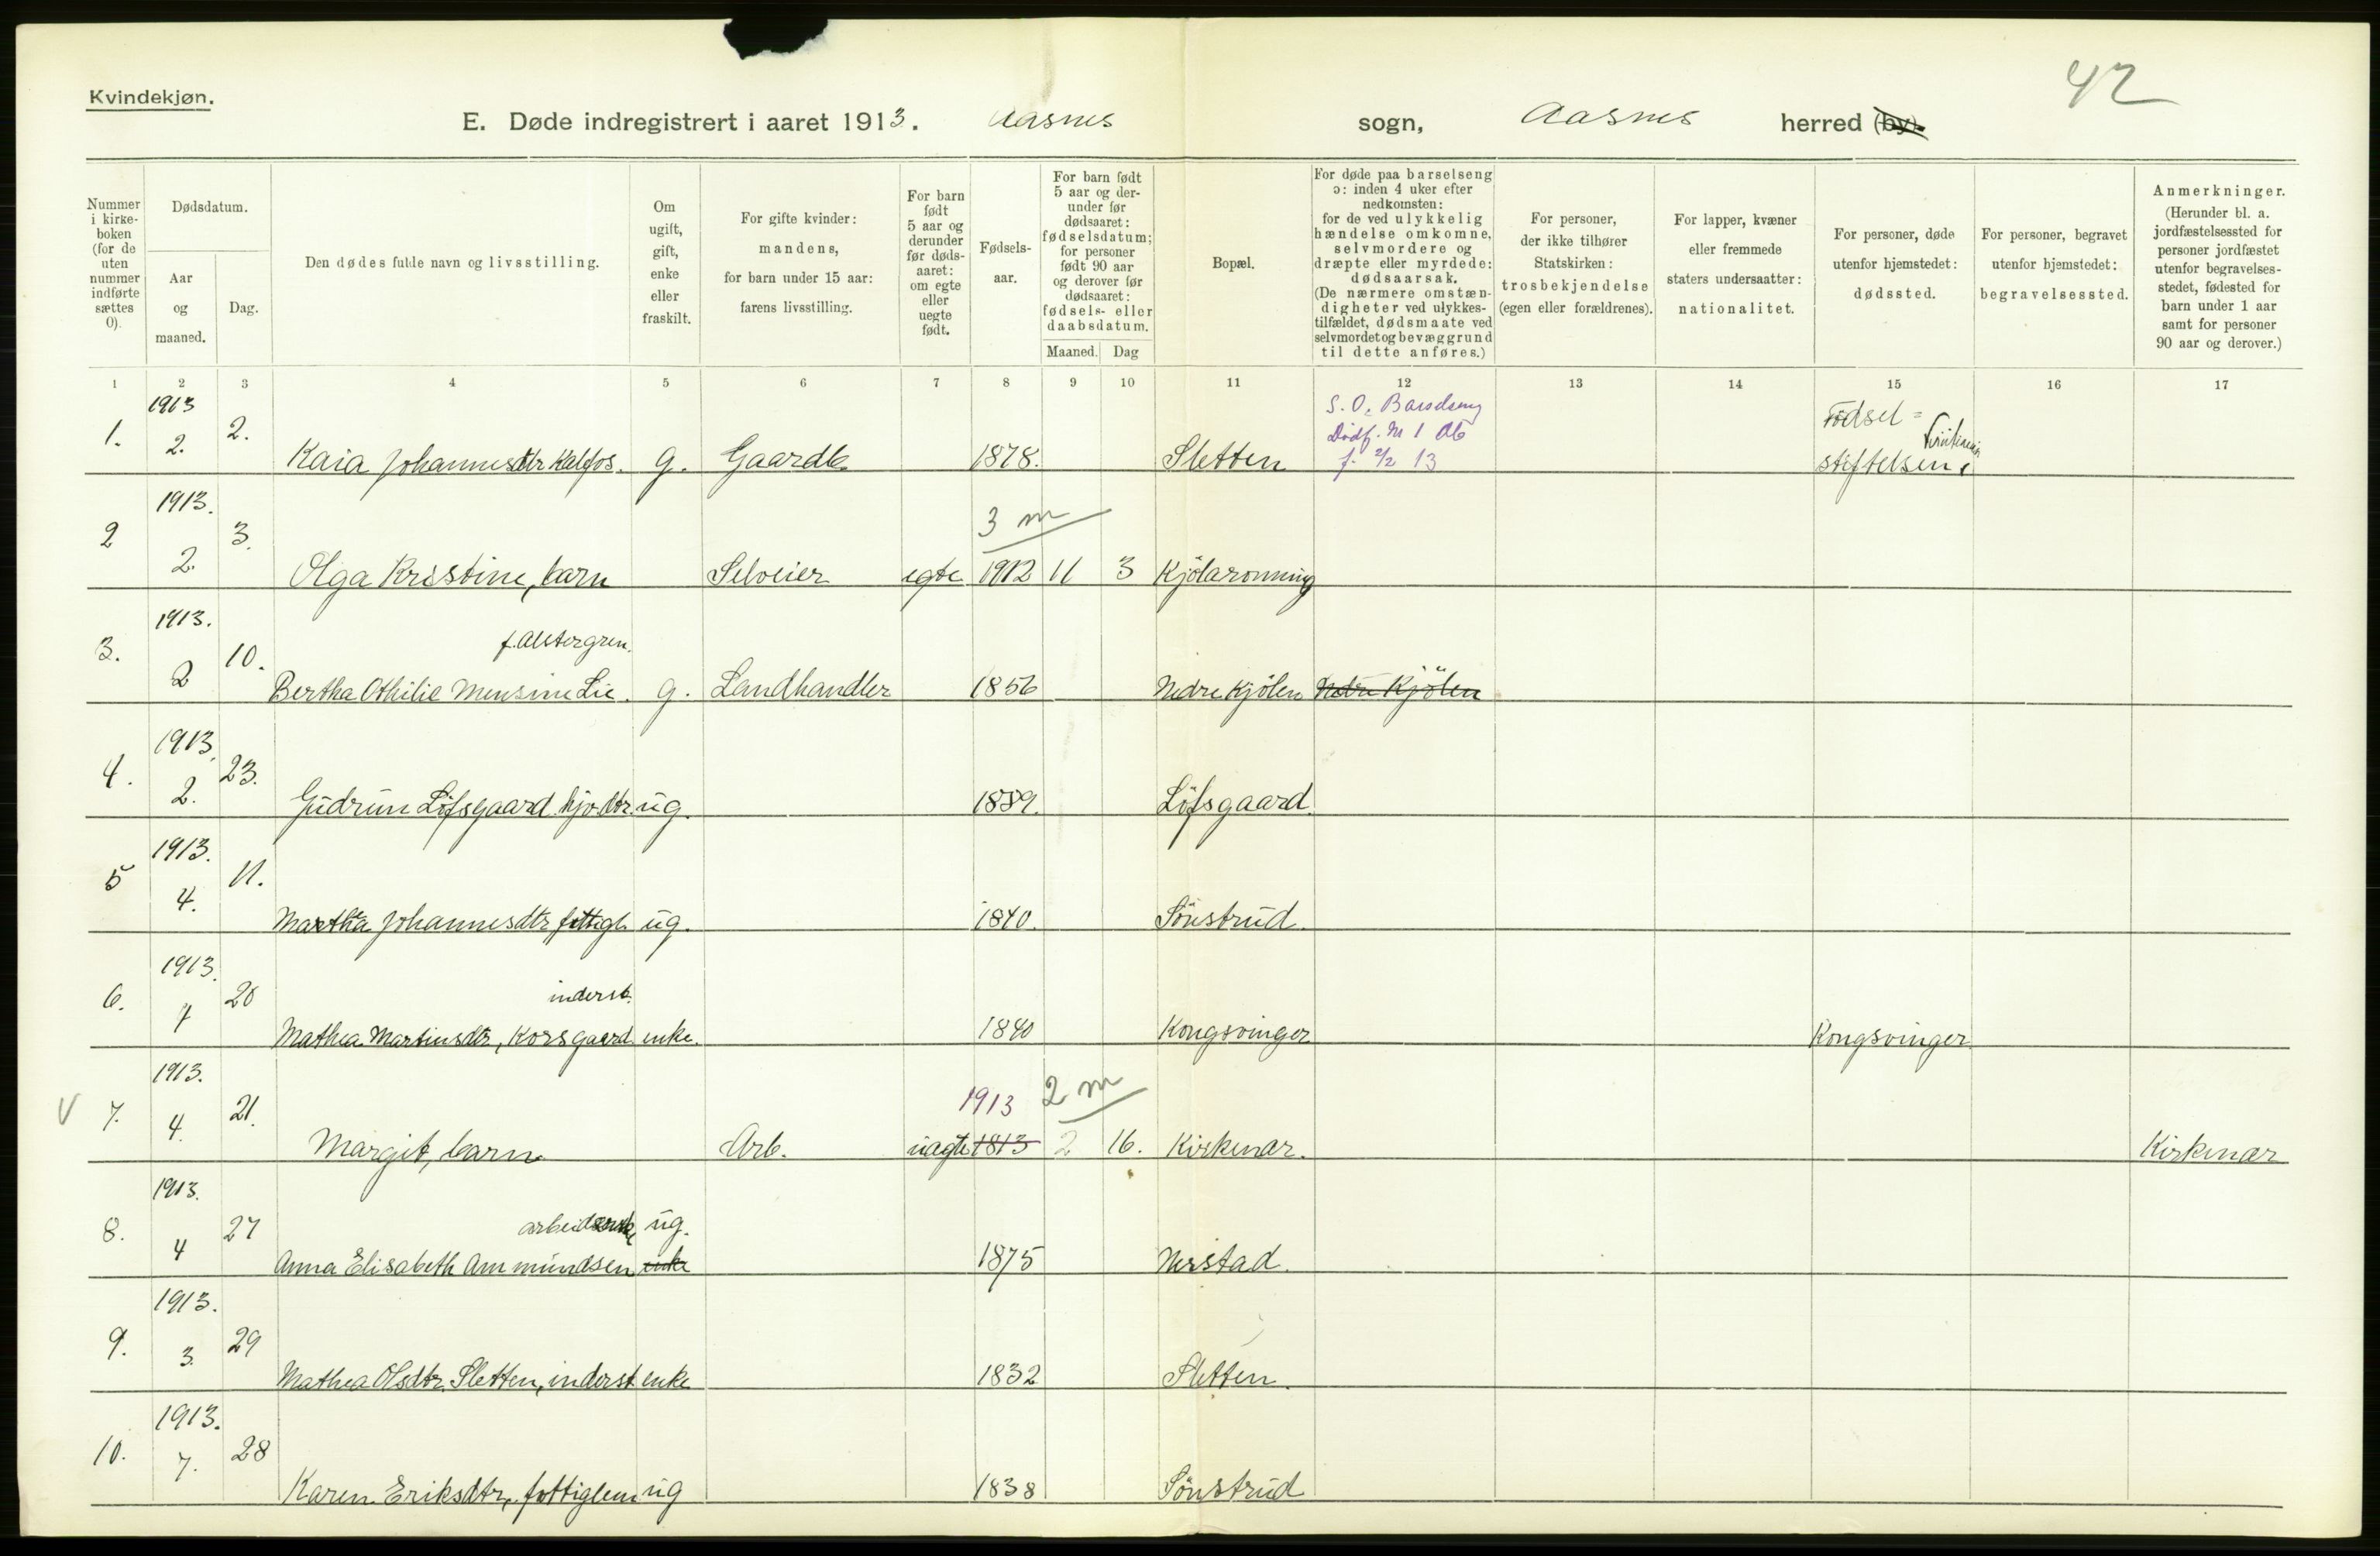 Kvindekjøn.
42
E. Døde indregistrert i aaret 1913. Aasnes sogn, Aasnes herred (by).
Nummer i kirke-boken (for de uten nummer indførte sættes 0).
Dødsdatum.
Aar og maaned.
Dag.
Den dødes fulde navn og livsstilling.
Om ugift, gift, enke eller fraskilt.
For gifte kvinder: mandens, for barn under 15 aar: farens livsstilling.
For barn født 5 aar og derunder før døds-aaret: om egte eller uegte født.
Fødsels-aar.
For barn født 5 aar og der-under før dødsaaret: fødselsdatum; for personer født 90 aar og derover før dødsaaret: fødsels- eller daabsdatum.
Maaned. Dag
Bopæl.
For døde paa barselseng ɔ: inden 4 uker efter nedkomsten: for de ved ulykkelig hændelse omkomne, selvmordere og dræpte eller myrdede: dødsaarsak. (De nærmere omstæn-digheter ved ulykkes-tilfældet, dødsmaate ved selvmordet og bevæggrund til dette anføres.)
For personer, der ikke tilhører Statskirken: trosbekjendelse (egen eller forældrenes).
For lapper, kvæner eller fremmede staters undersaatter: nationalitet.
For personer, døde utenfor hjemstedet: dødssted.
For personer, begravet utenfor hjemstedet: begravelsessted.
Anmerkninger. (Herunder bl. a. jordfæstelsessted for personer jordfæstet utenfor begravelses-stedet, fødested for barn under 1 aar samt for personer 90 aar og derover.)
1 2 3 4 5 6 7 8 9 10 11 12 13 14 15 16 17
1. 1913 2. 2. Kaia Johannesdtr Kalfos. g. Gaardb. 1878. Sletten S. O. Barselseng Dødf. № 1 Ab f. 2/2 13 Fødsel= stiftelsen, Kristiania
2 1913. 2. 3. Olga Kristine, barn Selveier egte 3 m 1912 11 3 Kjölaronning
3. 1913. 2 10. f. Alstergren. Bertha Othilie Mensine Lie. g. Landhandler 1856 Nedre Kjölen Nedre Kjölen
4. 1913. 2. 23. Gudrun Löfsgaard. ug. 1889. Löfsgaard.
5 1913. 4. 11. Martha Johannesdtr, fattigl. ug. 1840. Sönstrud.
6. 1913. 20 inderst. Mathea Martinsdtr, Korsgaard. enke. 1840 Kongsvinger Kongsvinger
7. 1913. 4. 21. Margit, barn Arb. uegte 1913 1813 2 m 2 16. Kirkenær. Kirkenær
V
8. 1913. 4 27 Anna Elisabeth Ammundsen ug. enke 1875 Nerstad.
9. 1913. 3. 29 Mathea Olsdtr. Sletten, inderst enke 1832 Sletten.
10. 1913. 7. 28 Karen Eriksdtr, fattiglem ug 1838 Sönstrud